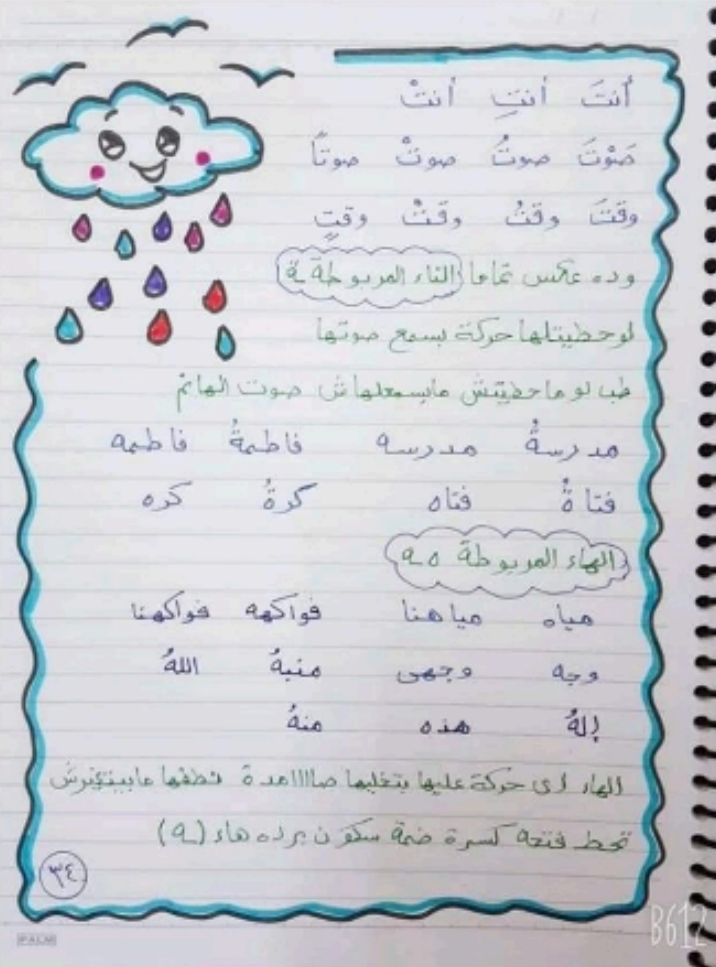 أنتَ أنتِ أنتْ
صَوْتَ صوتُ صوتْ صوتًا
وقتَ وقتُ وقتْ وقتٍ
وده عكس تماما التاء المربوطة ة
لو حطيتلها حركة بسمع صوتها
طب لو ماحطيتش مابسمعلهاش صوت الهانم
مدرسةُ مدرسه فاطمةُ فاطمه
فتاةُ فتاه كرةُ كره
الهاء المربوطة ه ـه
مياه مياهنا فواكهه فواكهنا
وجه وجهى منبهُ اللهُ
إلهُ هذه منهُ
الهاء اى حركة عليها بتخليها صاااامدة نطقها مابيتغيرش
تحط فتحه كسرة ضمة سكون برده هاء (ـه)
٣٤
B612